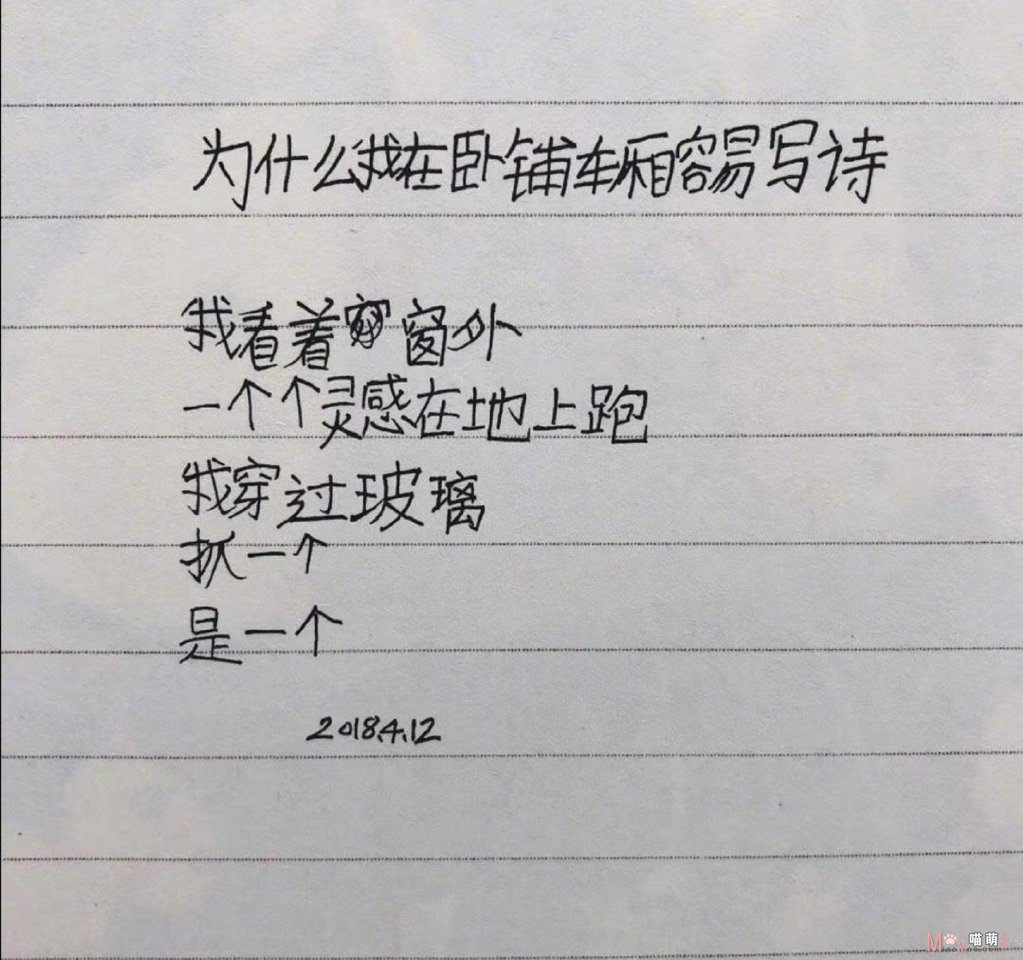 为什么我在卧铺车厢容易写诗
我看着窗外
一个个灵感在地上跑
我穿过玻璃
抓一个
是一个
2018.4.12
喵萌